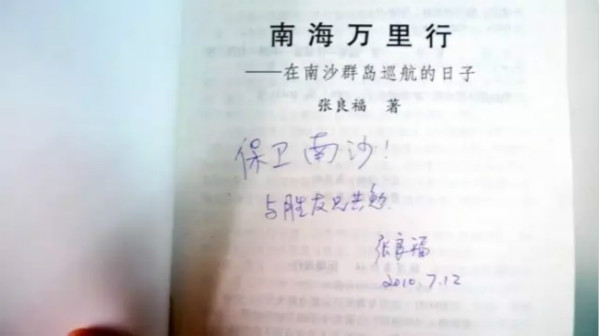 南海万里行
——在南沙群岛巡航的日子
张良福 著
保卫南沙!
与胜友兄共勉
张良福
2010.7.12